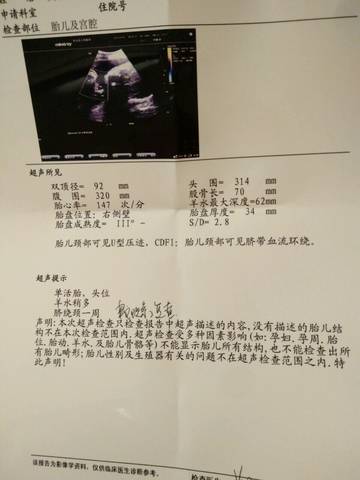 申请科室 住院号
检查部位 胎儿及宫腔
mindray
超声所见
双顶径= 92 mm 头 围= 314 mm
腹 围= 320 mm 股骨长= 70 mm
胎心率= 147 次/分 羊水最大深度=62mm
胎盘位置: 右侧壁 胎盘厚度= 34 mm
胎盘成熟度= III°- S/D= 2.8
胎儿颈部可见U型压迹, CDFI: 胎儿颈部可见脐带血流环绕。
超声提示
单活胎, 头位
羊水稍多
脐绕颈一周
声明: 本次超声检查只检查报告中超声描述的内容, 没有描述的胎儿结
构不在本次检查范围内. 超声检查受多种因素影响(如: 孕妇. 孕周. 胎
位. 胎动. 羊水. 及胎儿骨骼等)不能显示胎儿所有结构, 也不能检查出所
有胎儿畸形; 胎儿性别及生殖器有关的问题不在超声检查范围之内. 特
此声明!
该报告为影像学资料, 仅供临床医生诊断参考。